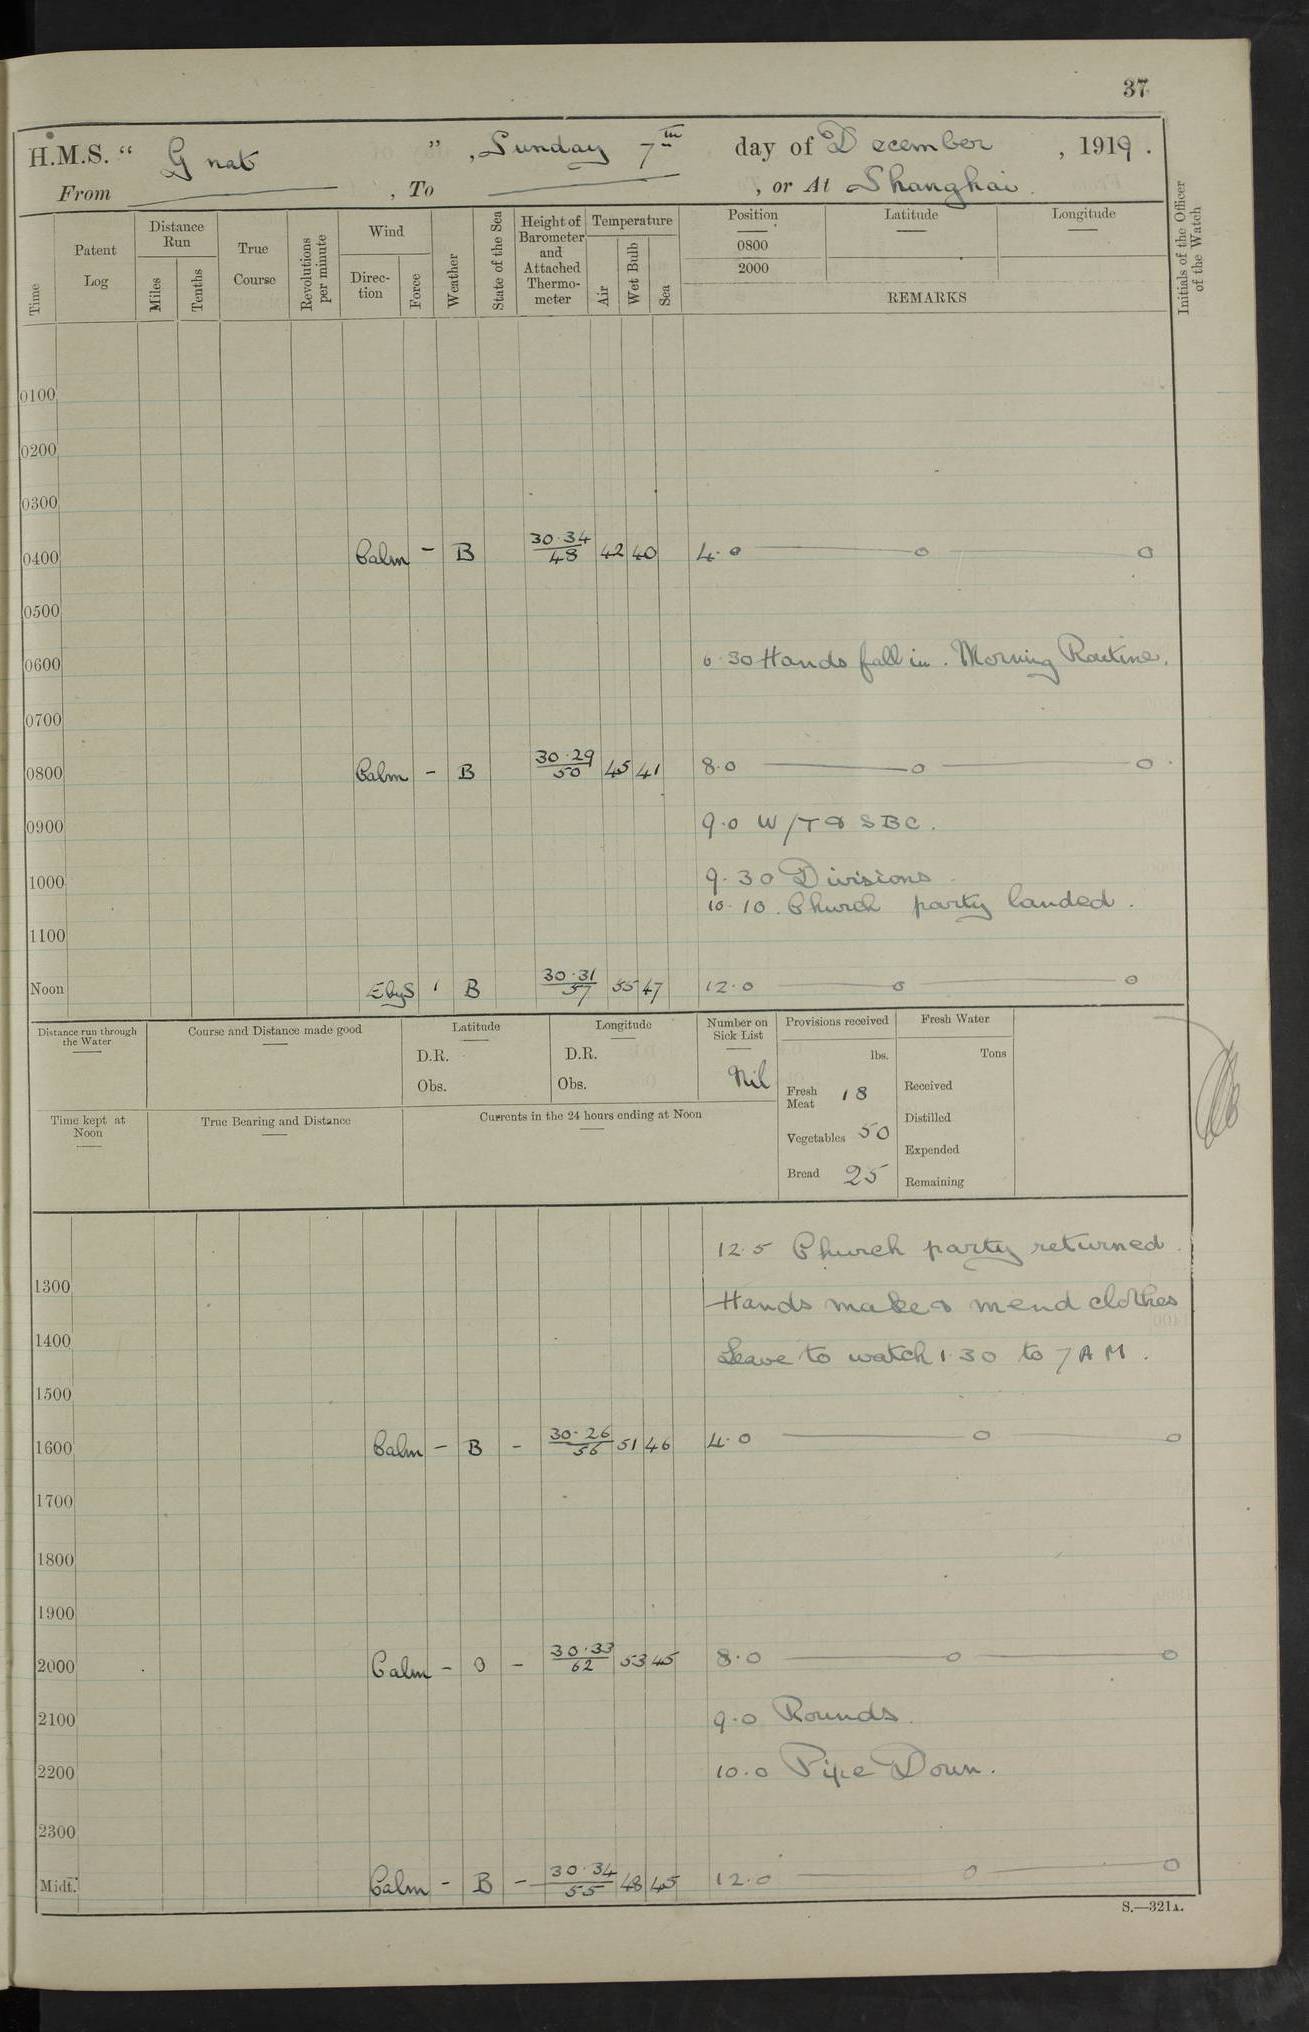 37
H.M.S. “ Gnat ” , Sunday 7th day of December , 1919 .
From , To , or At Shanghai .
Time
Patent Log
Distance Run
Miles
Tenths
True Course
Revolutions per minute
Wind
Direction
Force
Weather
State of the Sea
Height of Barometer and Attached Thermometer
Temperature
Air
Wet Bulb
Sea
Position
0800
2000
Latitude
Longitude
REMARKS
Initials of the Officer of the Watch
0100
0200
0300
0400 Calm – B 30·34 / 48 42 40 4·0 — o — o
0500
0600 6·30 Hands fall in . Morning Routine.
0700
0800 Calm – B 30·29 / 50 45 41 8·0 — o — o
0900 9·0 W/T & SBC .
1000 9·30 Divisions
10·10 . Church party landed .
1100
Noon EbyS 1 B 30·31 / 57 55 47 12·0 — o — o
Distance run through the Water
Course and Distance made good
Latitude
D.R.
Obs.
Longitude
D.R.
Obs.
Number on Sick List
Nil
Provisions received
lbs.
Fresh Meat 18
Vegetables 50
Bread 25
Fresh Water
Tons
Received
Distilled
Expended
Remaining
Time kept at Noon
True Bearing and Distance
Currents in the 24 hours ending at Noon
12·5 Church party returned
1300 Hands make & mend clothes
1400 Leave to watch 1·30 to 7 AM .
1500
1600 Calm – B – 30·26 / 56 51 46 4·0 — o — o
1700
1800
1900
2000 Calm – O – 30·33 / 62 53 45 8·0 — o — o
2100 9·0 Rounds
2200 10·0 Pipe Down .
2300
Midt. Calm – B – 30·34 / 55 48 45 12·0 — o — o
S.—321A.